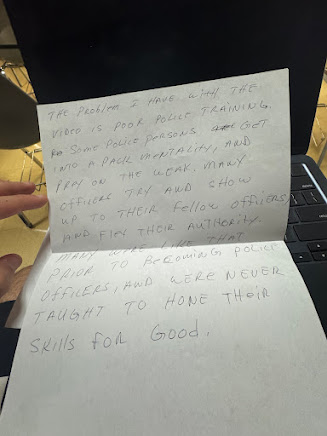 THE PROBLEM I HAVE WITH THE
VIDEO IS POOR POLICE TRAINING.
SOME POLICE PERSONS GET
INTO A PACK MENTALITY, AND
PRAY ON THE WEAK. MANY
OFFICERS TRY AND SHOW
UP TO THEIR FELLOW OFFICERS
AND FLEX THEIR AUTHORITY.
MANY WERE LIKE THAT
PRIOR TO BECOMING POLICE
OFFICERS, AND WERE NEVER
TAUGHT TO HONE THEIR
SKILLS FOR GOOD.